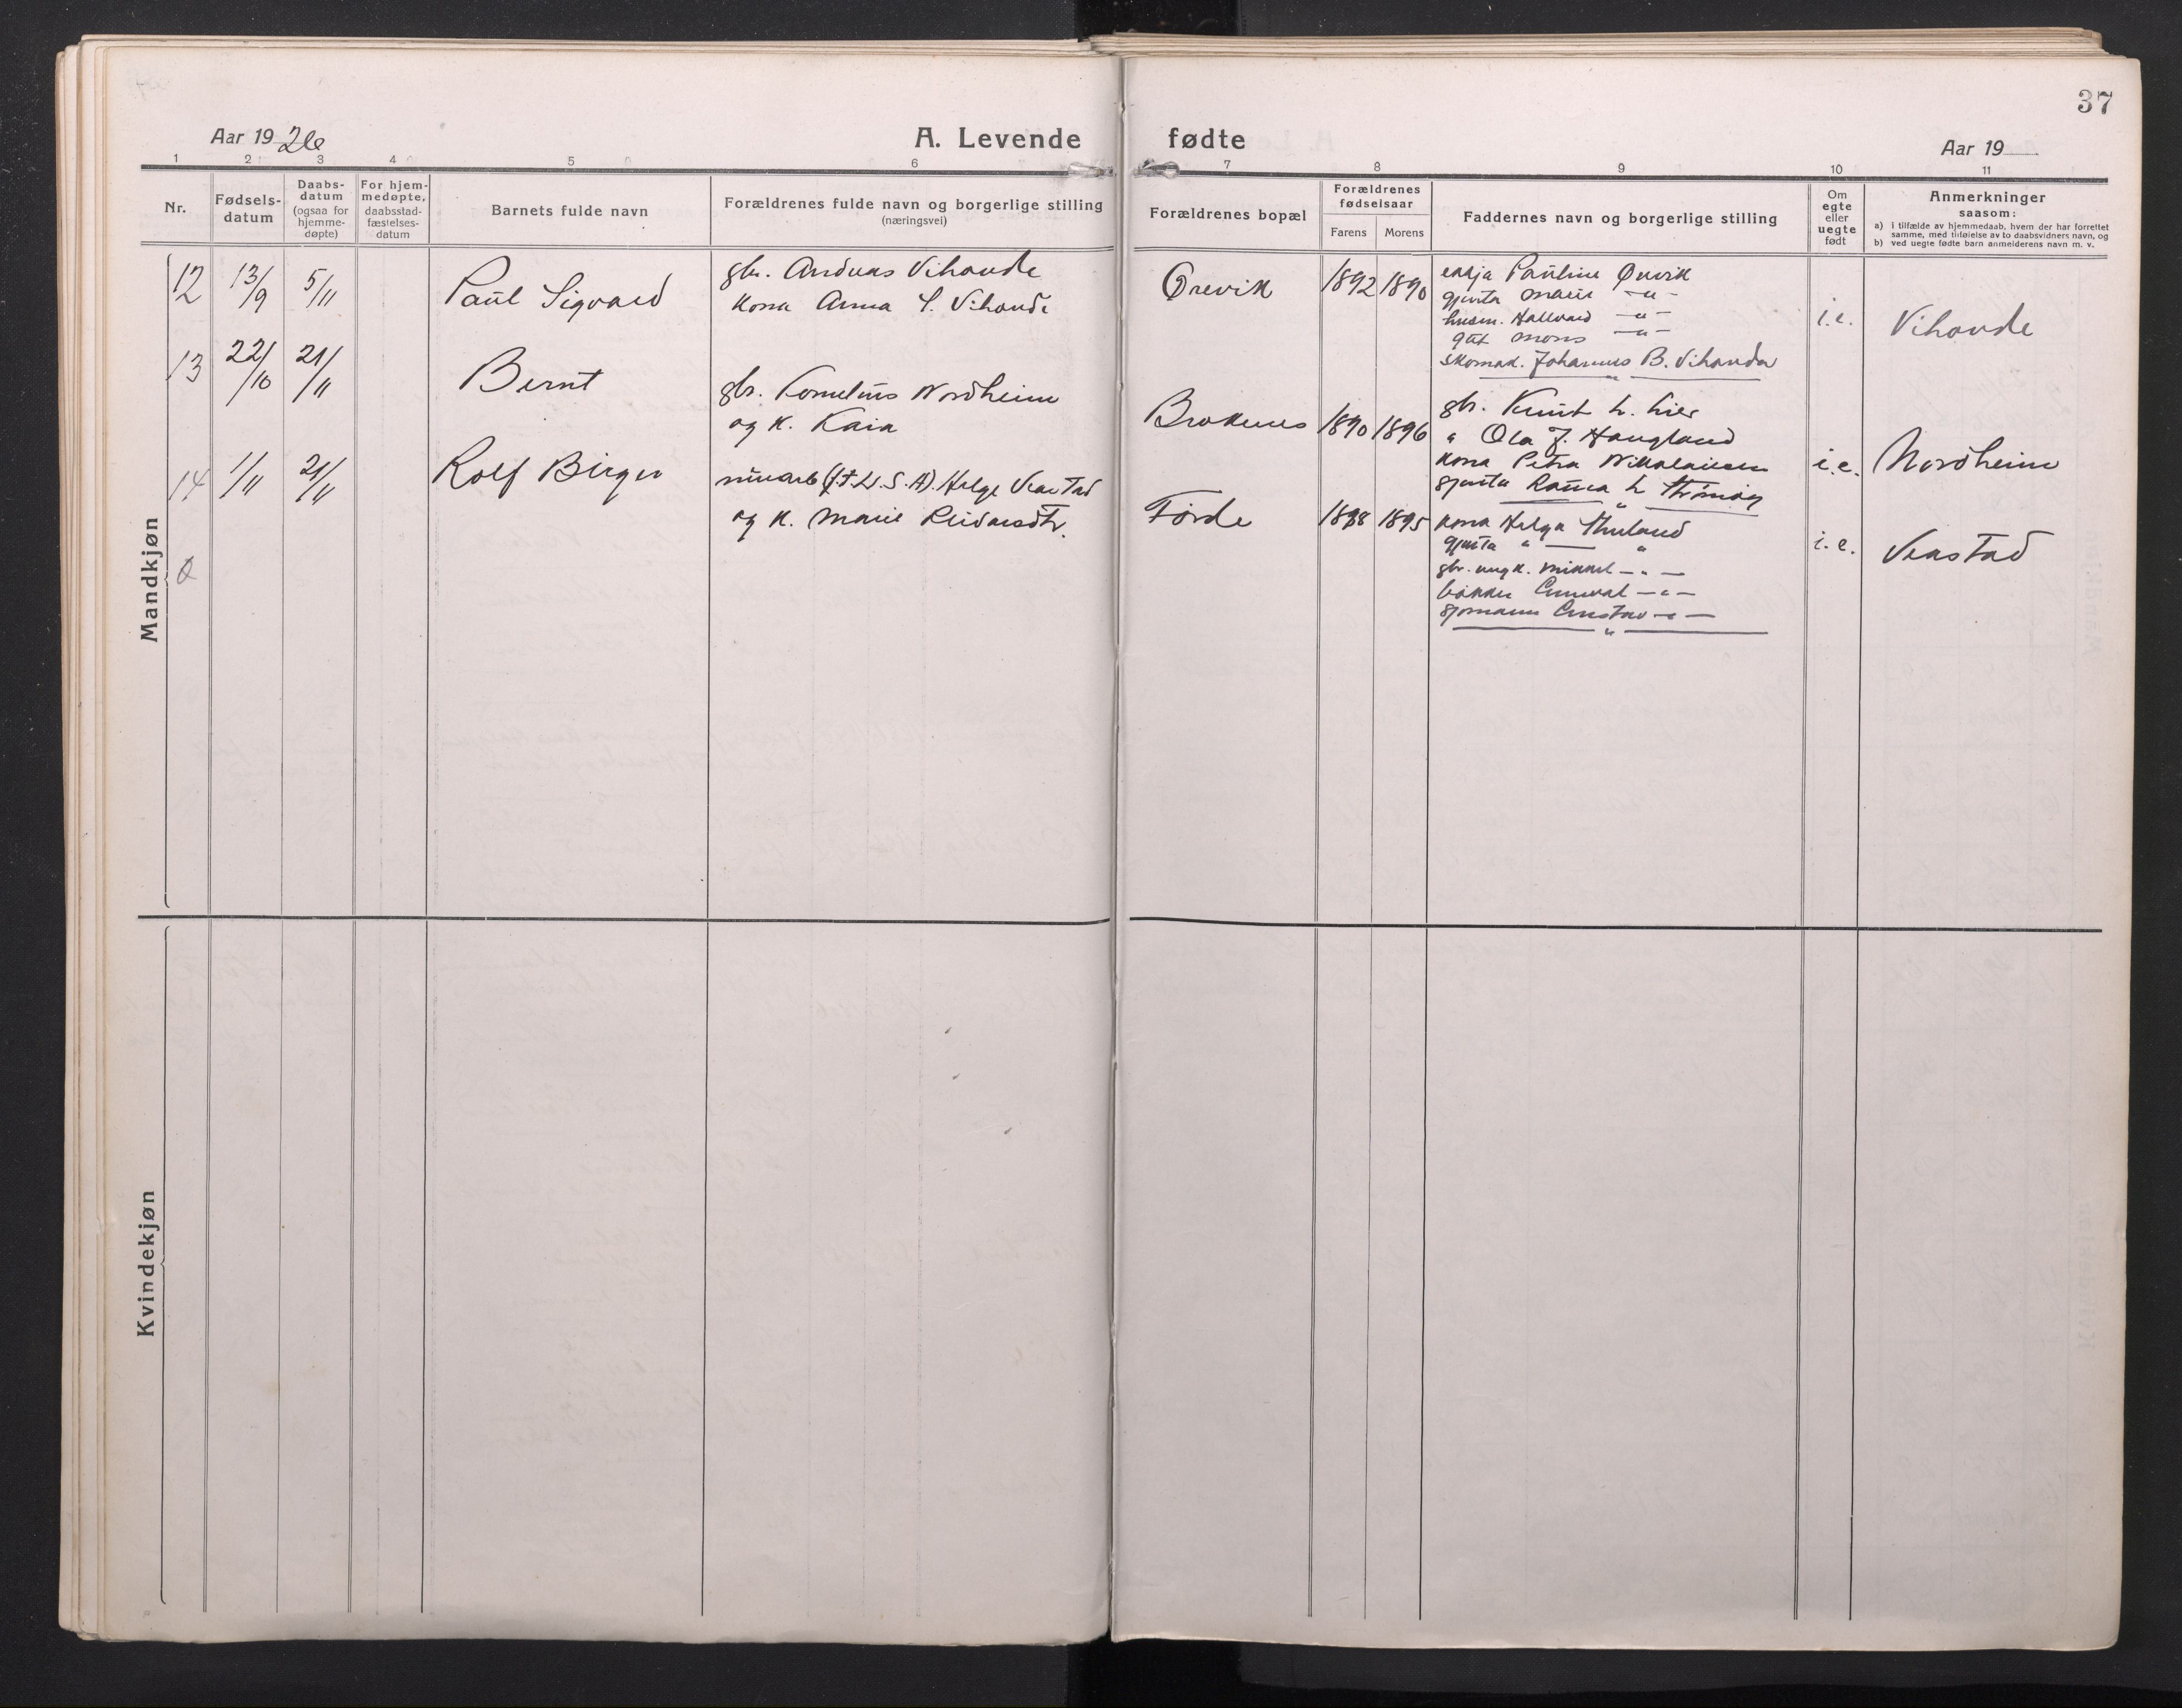 37
Aar 1926
A. Levende fødte
Aar 19
1 2 3 4 5 6 7 8 9 10 11
Nr.
Fødsels-
datum
Daabs-
datum
(ogsaa for
hjemme-
døpte)
For hjem-
medøpte,
daabsstad-
fæstelses-
datum
Barnets fulde navn
Forældrenes fulde navn og borgerlige stilling
(næringsvei)
Forældrenes bopæl
Forældrenes
fødselsaar
Farens Morens
Faddernes navn og borgerlige stilling
Om
egte
eller
uegte
født
Anmerkninger
saasom:
a) i tilfælde av hjemmedaab, hvem der har forrettet
samme, med tilføielse av to daabsvidners navn, og
b) ved uegte fødte barn anmelderens navn m. v.
Mandkjøn
12 13/9 5/11 Paul Sigvard
gbr. Andreas Vihovde
kona Anna S. Vihovde
Ørevik 1892 1890
enkja Pauline Ørevik
gjenta Marie -"-
husm. Hallvard -"-
gut Mons -"-
skomak. Johannes B. Vihovde
i.e. Vihovde
13 22/10 21/11 Bernt
gbr. Kornelius Nordheim
og k. Kaia
1890 1896
gbr. Knut L. Lier
" Ola J. Haugland
kona Petra Nikolaisen
gjenta
i.e. Nordheim
14 1/11 21/11 Rolf Birger
(f.t. U.S.A). Helge Veastad
og k. Marie Reidarsdtr.
Førde 1898 1895
kona Helga
gjenta " — "
gbr. ungk. Mikkel -"-
-"-
sjømann Gustav -"-
i.e. Veastad
Kvindekjøn